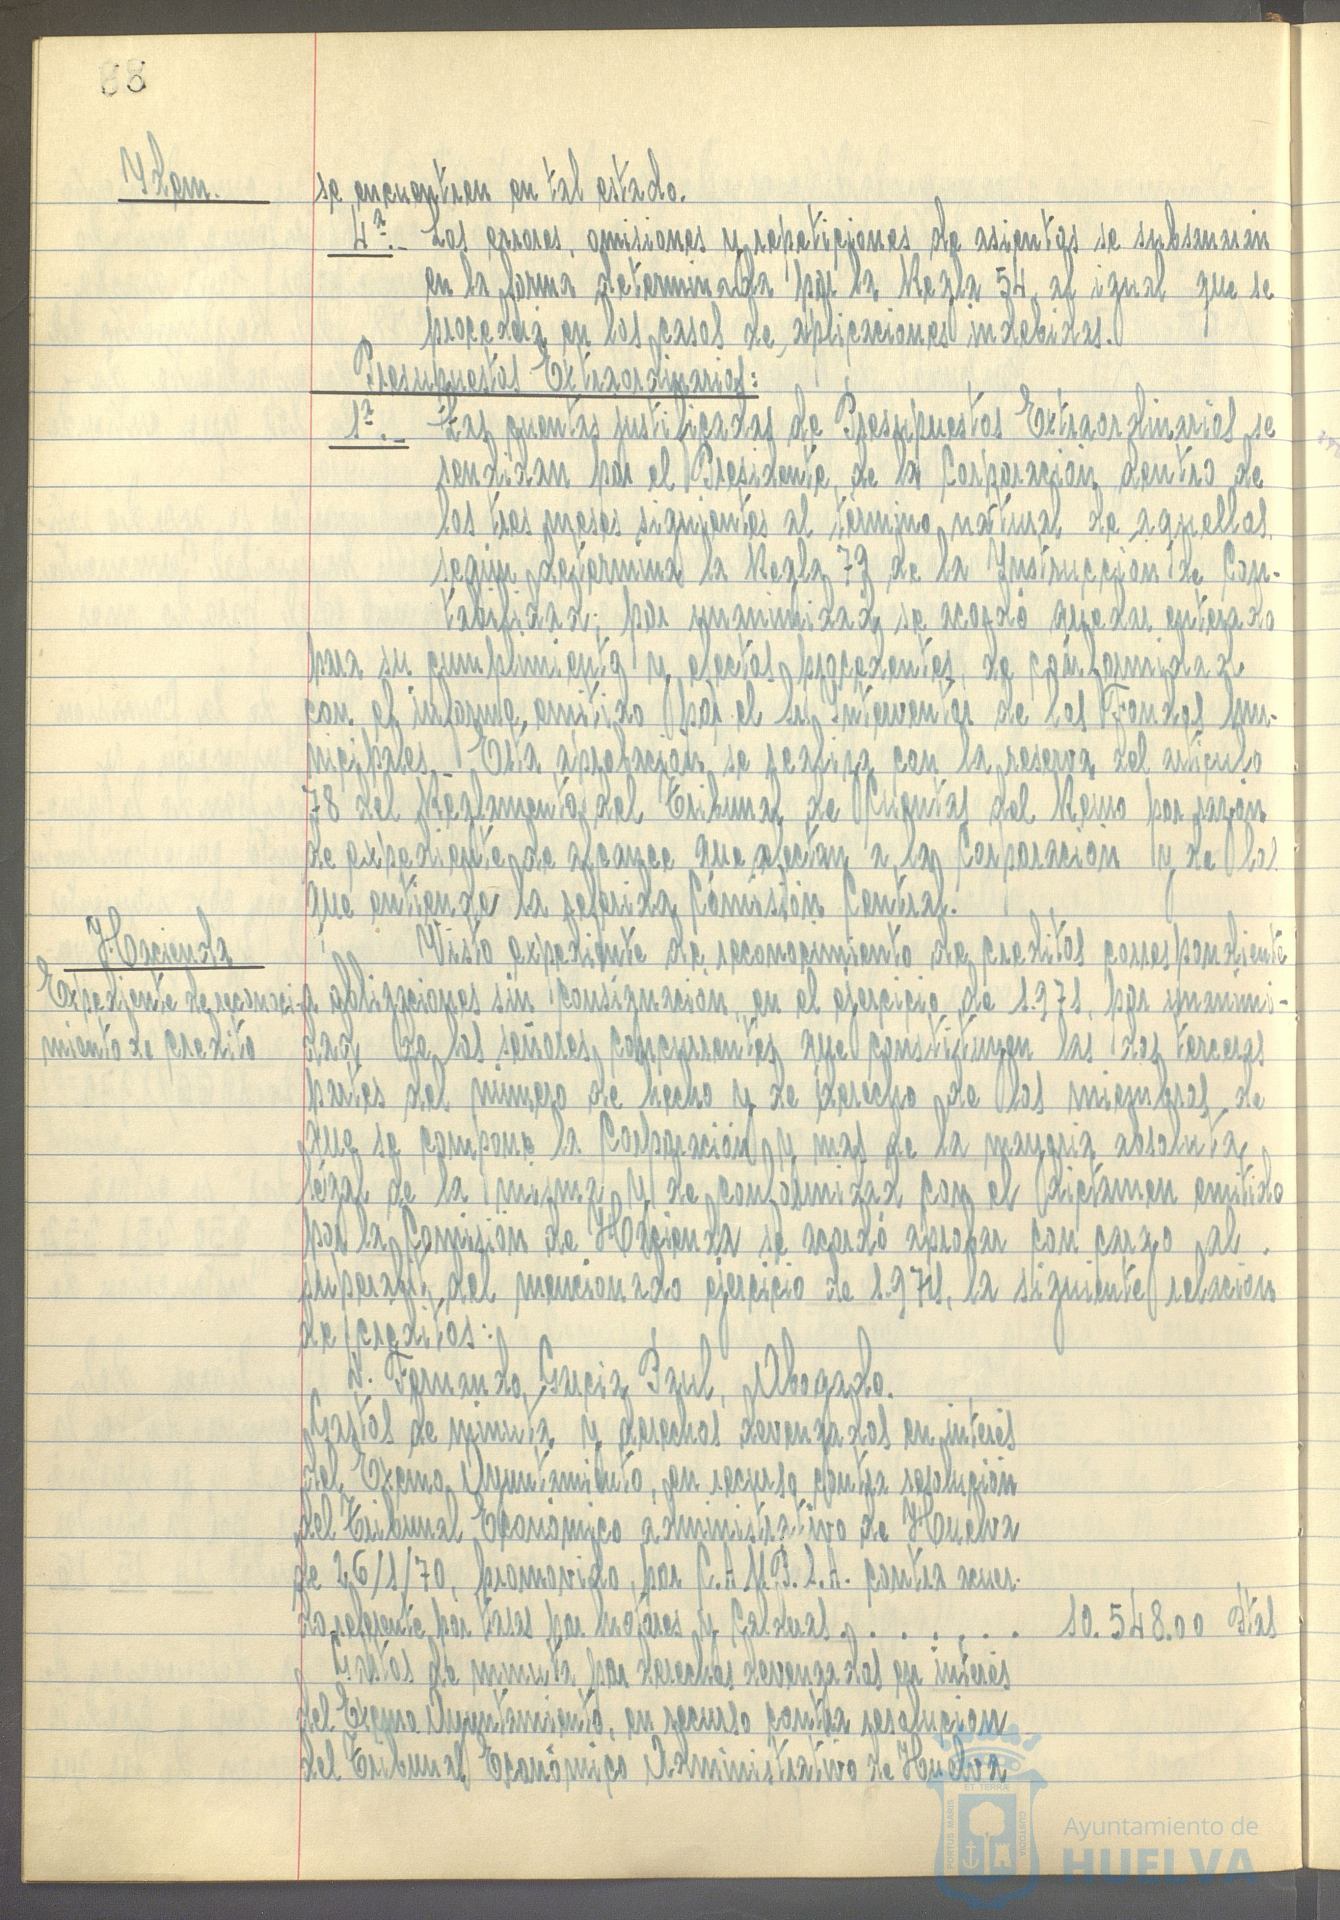 88
Ydem.
se encuentren en tal estado.
4ª.- Los errores, omisiones y repeticiones de asientos se subsanarán
en la forma determinada por la Regla 54, al igual que se
procederá en los casos de aplicaciones indebidas.
Presupuestos Extraordinarios:
1ª.- Las cuentas justificadas de Presupuestos Extraordinarios se
rendirán por el Presidente de la Corporación dentro de
los tres meses siguientes al término natural de aquellos
según determina la Regla 73 de la Instrucción de Con-
tabilidad; por unanimidad se acordó quedar enterado
para su cumplimiento y efectos procedentes, de conformidad
con el informe emitido por el Sr. Interventor de los Fondos Mu-
nicipales.- Esta aprobación se realiza con la reserva del artículo
78 del Reglamento del Tribunal de Cuentas del Reino por razón
de expediente de alcance que afectan a la Corporación y de los
que entiende la referida Comisión Central.
Hacienda
Expediente de reconoci-
miento de credito
Visto expediente de reconocimiento de creditos correspondiente
a obligaciones sin consignación, en el ejercicio de 1.971, por unanimi-
dad de los señores concurrentes que constituyen las dos terceras
partes del número de hecho y de derecho de los miembros de
que se compone la Corporación y mas de la mayoria absoluta
legal de la misma y de conformidad con el dictamen emitido
por la Comisión de Hacienda se acordó aprobar con cargo al
superavit del mencionado ejercicio de 1.971, la siguiente relacion
de creditos:
D. Fernando Garcia Paul, Abogado.
Gastos de minuta y derechos devengados en interés
del Excmo Ayuntamiento, en recurso contra resolución
del Tribunal Económico administrativo de Huelva
de 26/1/70, promovido por C.A.M.P.S.A. contra acuer-
do referente por tasas por Motores y Calderas . . . . . . 10.548.00 Ptas
Gastos de minuta por derechos devengados en interés
del Excmo Ayuntamiento, en recurso contra resolucion
del Tribunal Económico Administrativo de Huelva
PORTUS MARIS
ET TERRAE
CUSTODIA
Ayuntamiento de
HUELVA